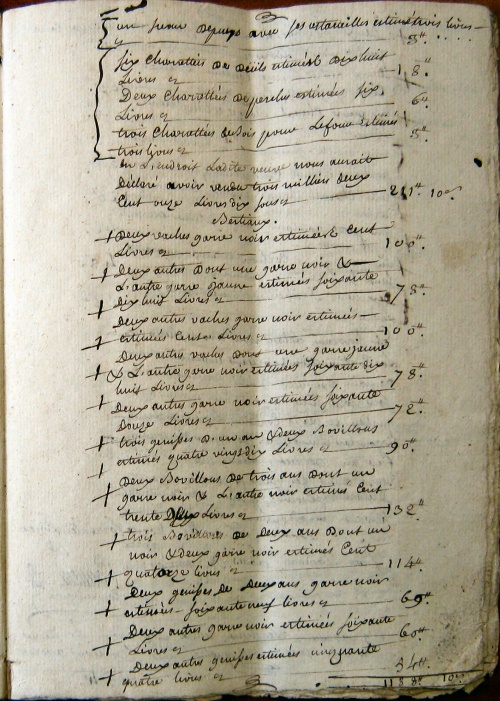 un avec ses ustancilles estimé trois livres
& 3#.
six charattées de estimées dixhuit
Livres & 18#.
Deux charattées de perche estimées six
Livres & 6#.
trois charattées de bois pour Le four estimés
trois livres & 3#.
en L'endroit Ladite veuve nous aurait
Déclaré avoir vendu trois milliers deux
Cent onze Livres dix sous & 211# 10s
Bestiaux.
+ Deux vaches garre noir estimées Cent
Livres & 100#.
+ Deux autres dont une garre noir &
L'autre garre jaune estimées soixante
+ dix huit Livres & 78#.
Deux autres vaches garre noir estimés
+ estimées Cent Livres & 100#.
Deux autres vaches dont une garre jaune
+ & L'autre garre noir estimées soixante dix
huit Livres & 78#.
+ Deux autres garre noir estimées soixante
Douze Livres & 72#.
+ trois genisses d'un an & deux Bovillons
+ estimés quatre vingt dix Livres & 90#.
+ Deux Bovillons de trois ans dont un
garre noir & L'autre noir estimés Cent
trente Deux Livres & 132#
+ trois de Deux ans Dont un
noir & deux garre noir estimés Cent
+ quatorze livres & 114#.
Deux genisses de Deux ans garre noir
+ estimées soixante neuf livres & 69#.
+ Deux autres garre noir estimées soixante
Livres & 60#.
+ Deux autres genisses estimées cinquante
quatre livres & 54#.
10s